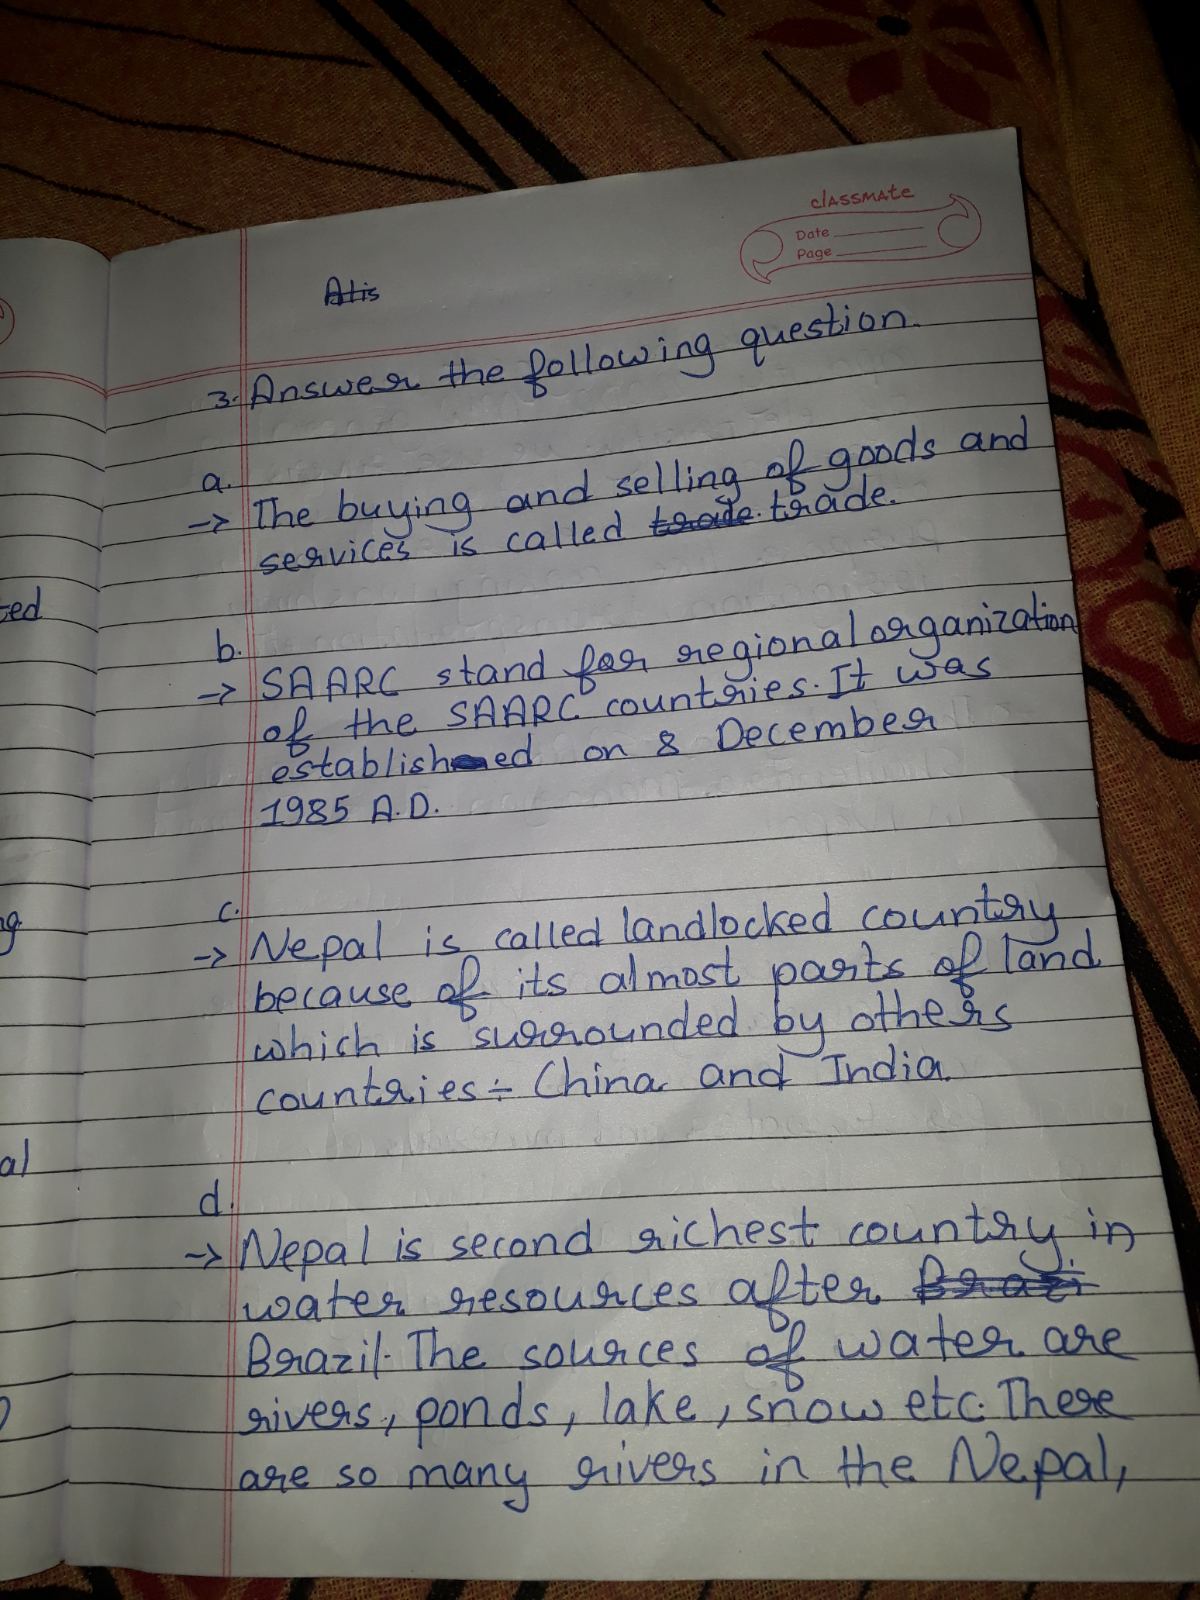 classmate
Date
Page
Atis
3. Answer the following question.
a.
→ The buying and selling of goods and
services is called trade. trade.
b.
→ SAARC stand for regional organization
of the SAARC countries. It was
established on 8 December
1985 A.D.
c.
→ Nepal is called landlocked country
because of its almost parts of land
which is surrounded by others
countries÷ China and India.
d.
→ Nepal is second richest country in
water resources after Brazi
Brazil. The sources of water are
rivers, ponds, lake, snow etc. There
are so many rivers in the Nepal,
ted
ng
al